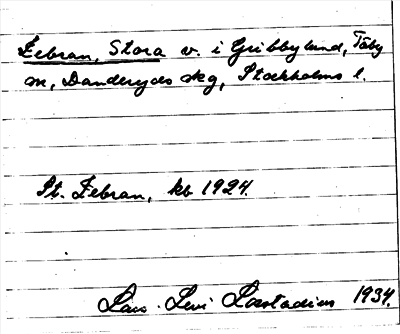 Zebran, Stora v. i Gribbylund, Täby
sn, Danderyds skg, Stockholms l.
St. Zebran, kb 1924.
Lars-Levi Læstadius 1934.